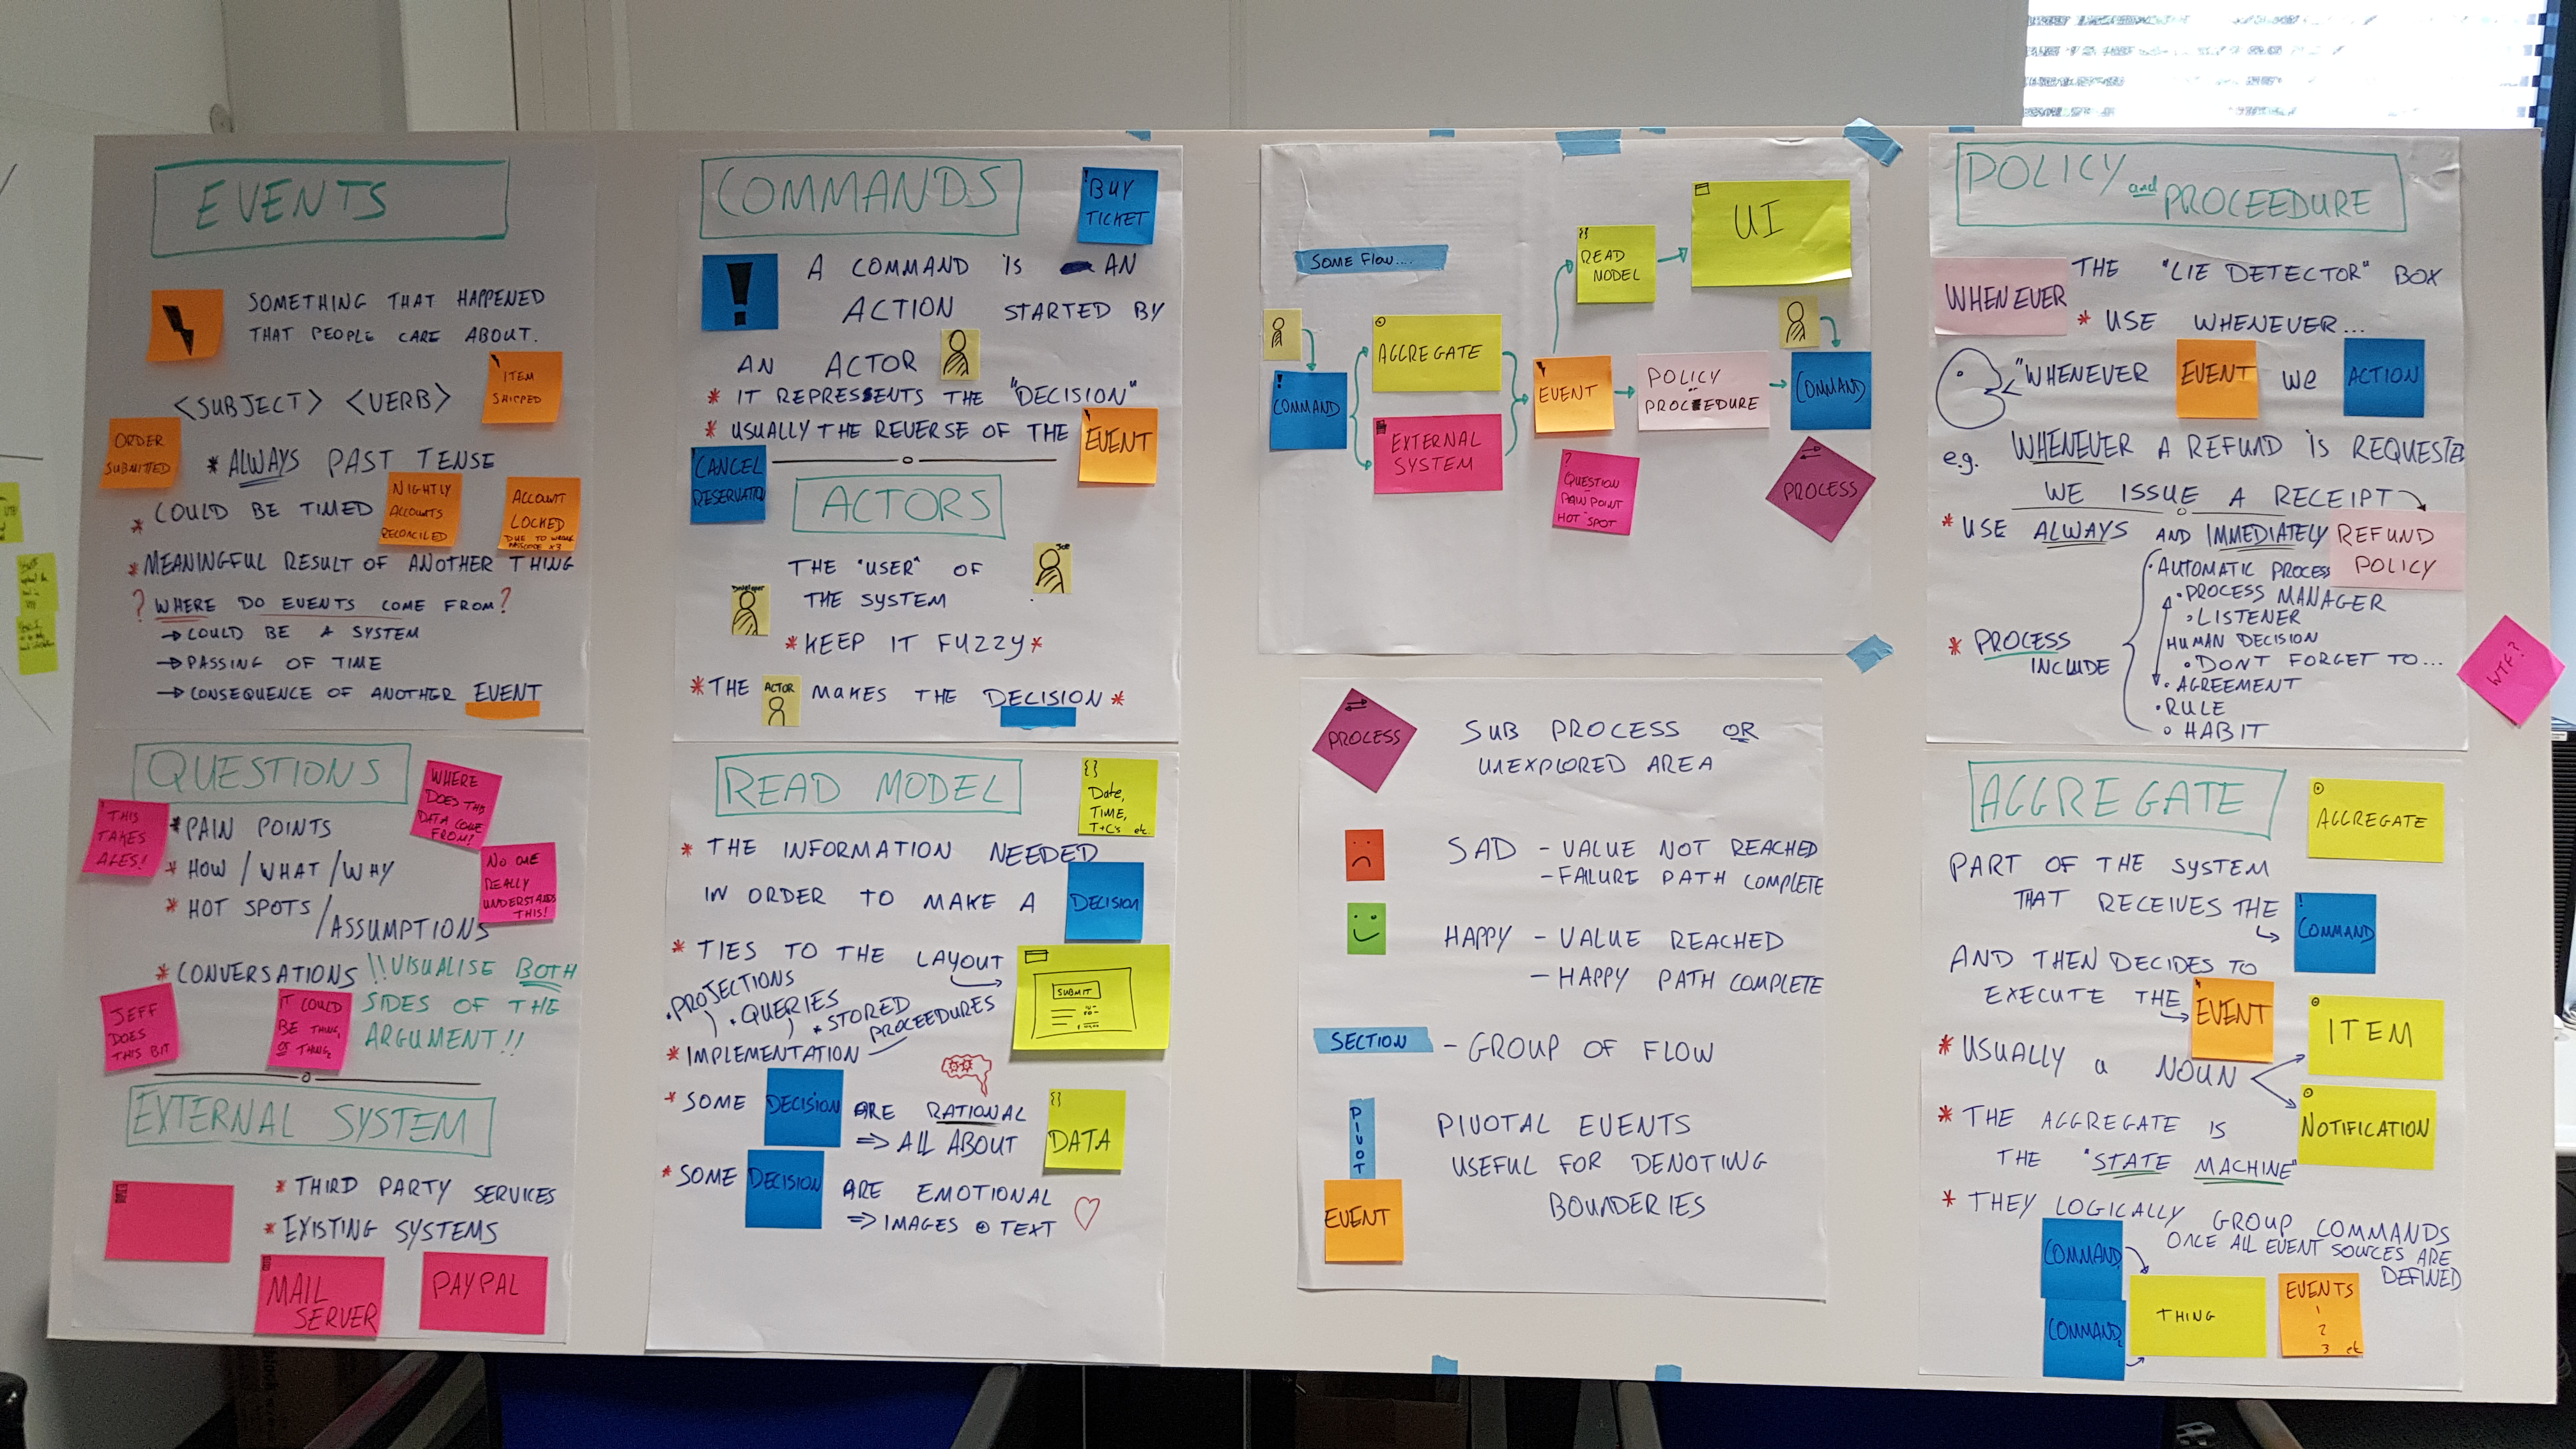 EVENTS
SOMETHING THAT HAPPENED
THAT PEOPLE CARE ABOUT.
<SUBJECT> <VERB>
ITEM
SHIPPED
ORDER
SUBMITTED
* ALWAYS PAST TENSE
* COULD BE TIMED
NIGHTLY
ACCOUNTS
RECONCILED
ACCOUNT
LOCKED
DUE TO WRONG
PASSCODE x3
* MEANINGFUL RESULT OF ANOTHER THING
? WHERE DO EVENTS COME FROM?
→ COULD BE A SYSTEM
→ PASSING OF TIME
→ CONSEQUENCE OF ANOTHER EVENT
QUESTIONS
WHERE
DOES THIS
DATA COME
FROM?
THIS
TAKES
AGES!
* PAIN POINTS
* HOW / WHAT / WHY
* HOT SPOTS / ASSUMPTIONS
NO ONE
REALLY
UNDERSTANDS
THIS!
* CONVERSATIONS
!! VISUALISE BOTH
SIDES OF THE
ARGUMENT!!
JEFF
DOES
THIS BIT
IT COULD
BE THING,
OR THING2
EXTERNAL SYSTEM
* THIRD PARTY SERVICES
* EXISTING SYSTEMS
MAIL
SERVER
PAYPAL
COMMANDS
! BUY
TICKET
!
A COMMAND IS AN
ACTION STARTED BY
AN ACTOR
* IT REPRESENTS THE "DECISION"
* USUALLY THE REVERSE OF THE
EVENT
CANCEL
RESERVATION
ACTORS
THE "USER" OF
THE SYSTEM
Joe
Developer
* KEEP IT FUZZY *
* THE ACTOR MAKES THE DECISION *
READ MODEL
{}
Date,
TIME,
T+C's etc.
* THE INFORMATION NEEDED
IN ORDER TO MAKE A DECISION
* TIES TO THE LAYOUT
SUBMIT
• PROJECTIONS
• QUERIES
* STORED
PROCEEDURES
* IMPLEMENTATION
* SOME DECISION ARE RATIONAL
⇒ ALL ABOUT
{}
DATA
* SOME DECISION ARE EMOTIONAL
⇒ IMAGES TEXT
SOME FLOW....
! COMMAND
AGGREGATE
EXTERNAL
SYSTEM
EVENT
{}
READ
MODEL
UI
POLICY
PROCEEDURE
COMMAND
?
QUESTION
PAIN POINT
HOT SPOT
PROCESS
PROCESS
SUB PROCESS OR
UNEXPLORED AREA
SAD - VALUE NOT REACHED
- FAILURE PATH COMPLETE
HAPPY - VALUE REACHED
- HAPPY PATH COMPLETE
SECTION - GROUP OF FLOW
PIVOT
EVENT
PIVOTAL EVENTS
USEFUL FOR DENOTING
BOUNDERIES
POLICY and PROCEEDURE
WHENEVER
THE "LIE DETECTOR" BOX
* USE WHENEVER...
"WHENEVER EVENT WE ACTION
e.g. WHENEVER A REFUND IS REQUESTED
WE ISSUE A RECEIPT
* USE ALWAYS AND IMMEDIATELY
REFUND
POLICY
* PROCESS
INCLUDE
• AUTOMATIC PROCESS
• PROCESS MANAGER
• LISTENER
HUMAN DECISION
• DONT FORGET TO...
• AGREEMENT
• RULE
• HABIT
WTF?
AGGREGATE
AGGREGATE
PART OF THE SYSTEM
THAT RECEIVES THE
! COMMAND
AND THEN DECIDES TO
EXECUTE THE
EVENT
* USUALLY a NOUN
ITEM
NOTIFICATION
* THE AGGREGATE IS
THE "STATE MACHINE"
* THEY LOGICALLY GROUP COMMANDS
ONCE ALL EVENT SOURCES ARE
DEFINED
COMMAND
COMMAND2
THING
EVENTS
1
2
3 etc